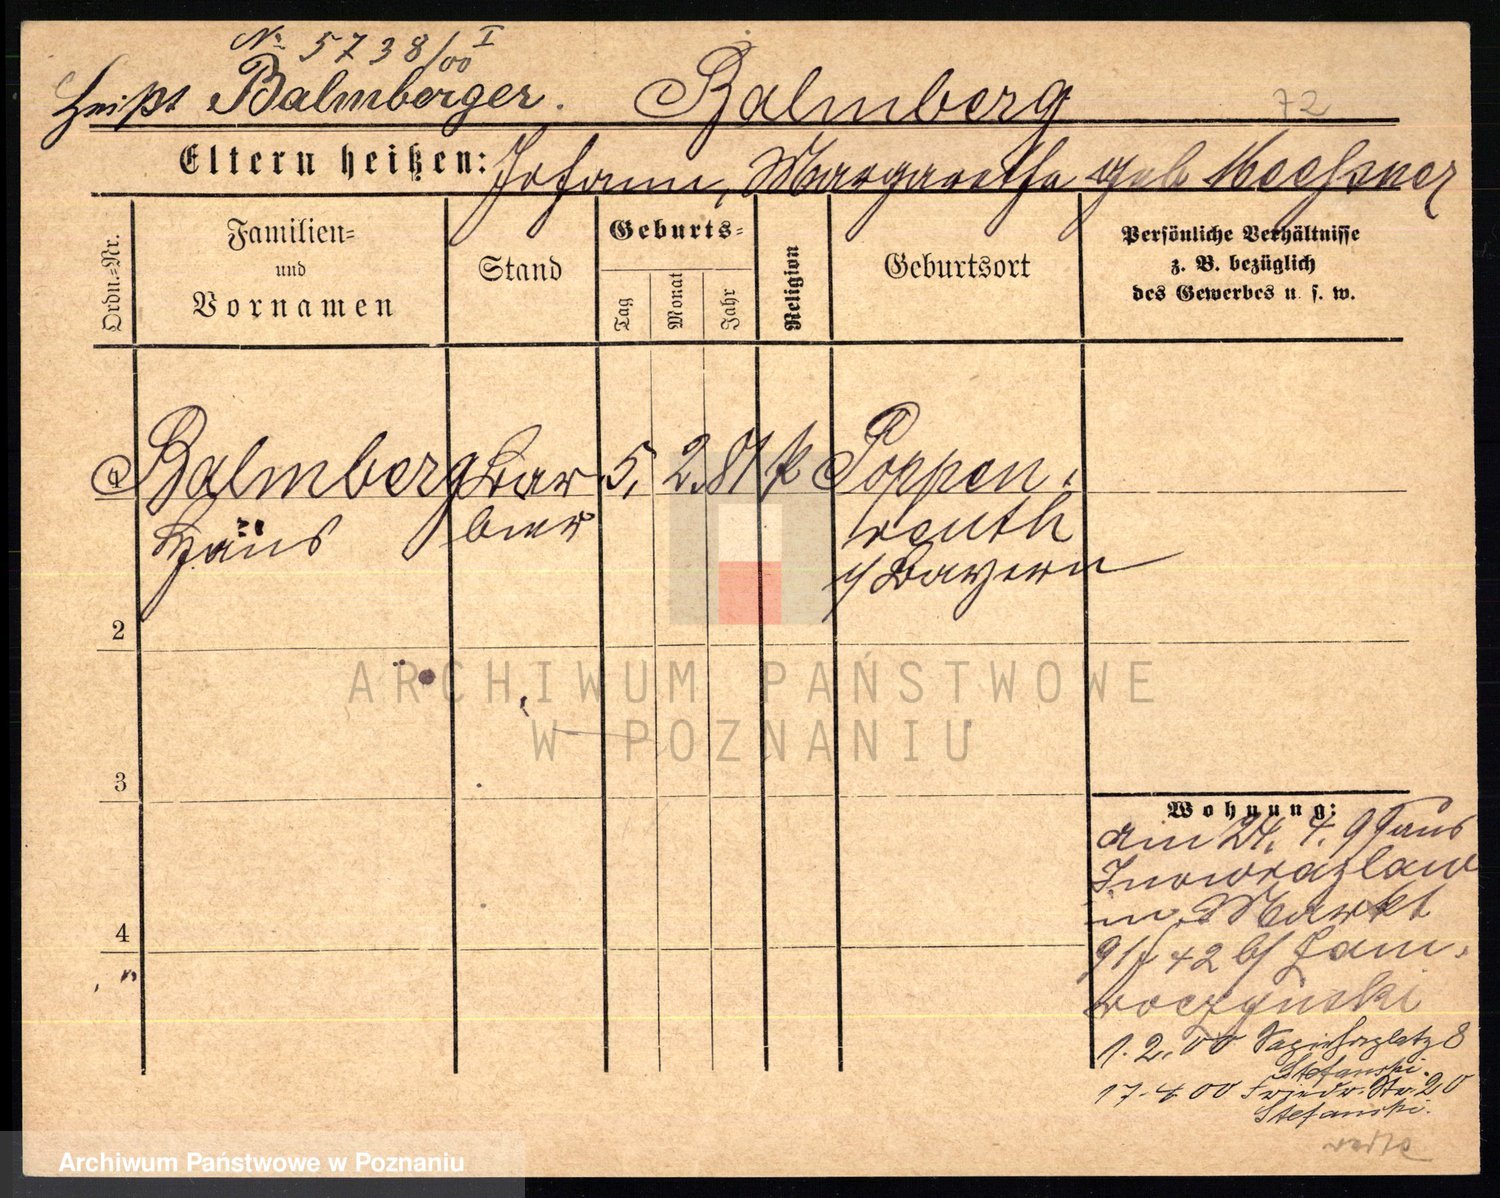 No 5738/00 I
heißt Balmberger. Balmberg 72
Eltern heißen: Johann, Margaretha geb
Ordn.-Nr.
Familien- und Vornamen
Stand
Geburts-
Tag
Monat
Jahr
Religion
Geburtsort
Persönliche Verhältnisse
z. B. bezüglich
des Gewerbes u. s. w.
1 Balmberg Bar 5. 2. 81 k Poppen
bier reuth
i/ Bayern
2
3
4
Wohnung:
am 24. 4. 99 aus
Inowrazlaw
Markt
42 b/
1. 2. 00 Sapiehaplatz 8
Stefanski.
17. 4 00 Friedr. Str. 20
Stefanski.
ARCHIWUM PAŃSTWOWE
W POZNANIU
Archiwum Państwowe w Poznaniu